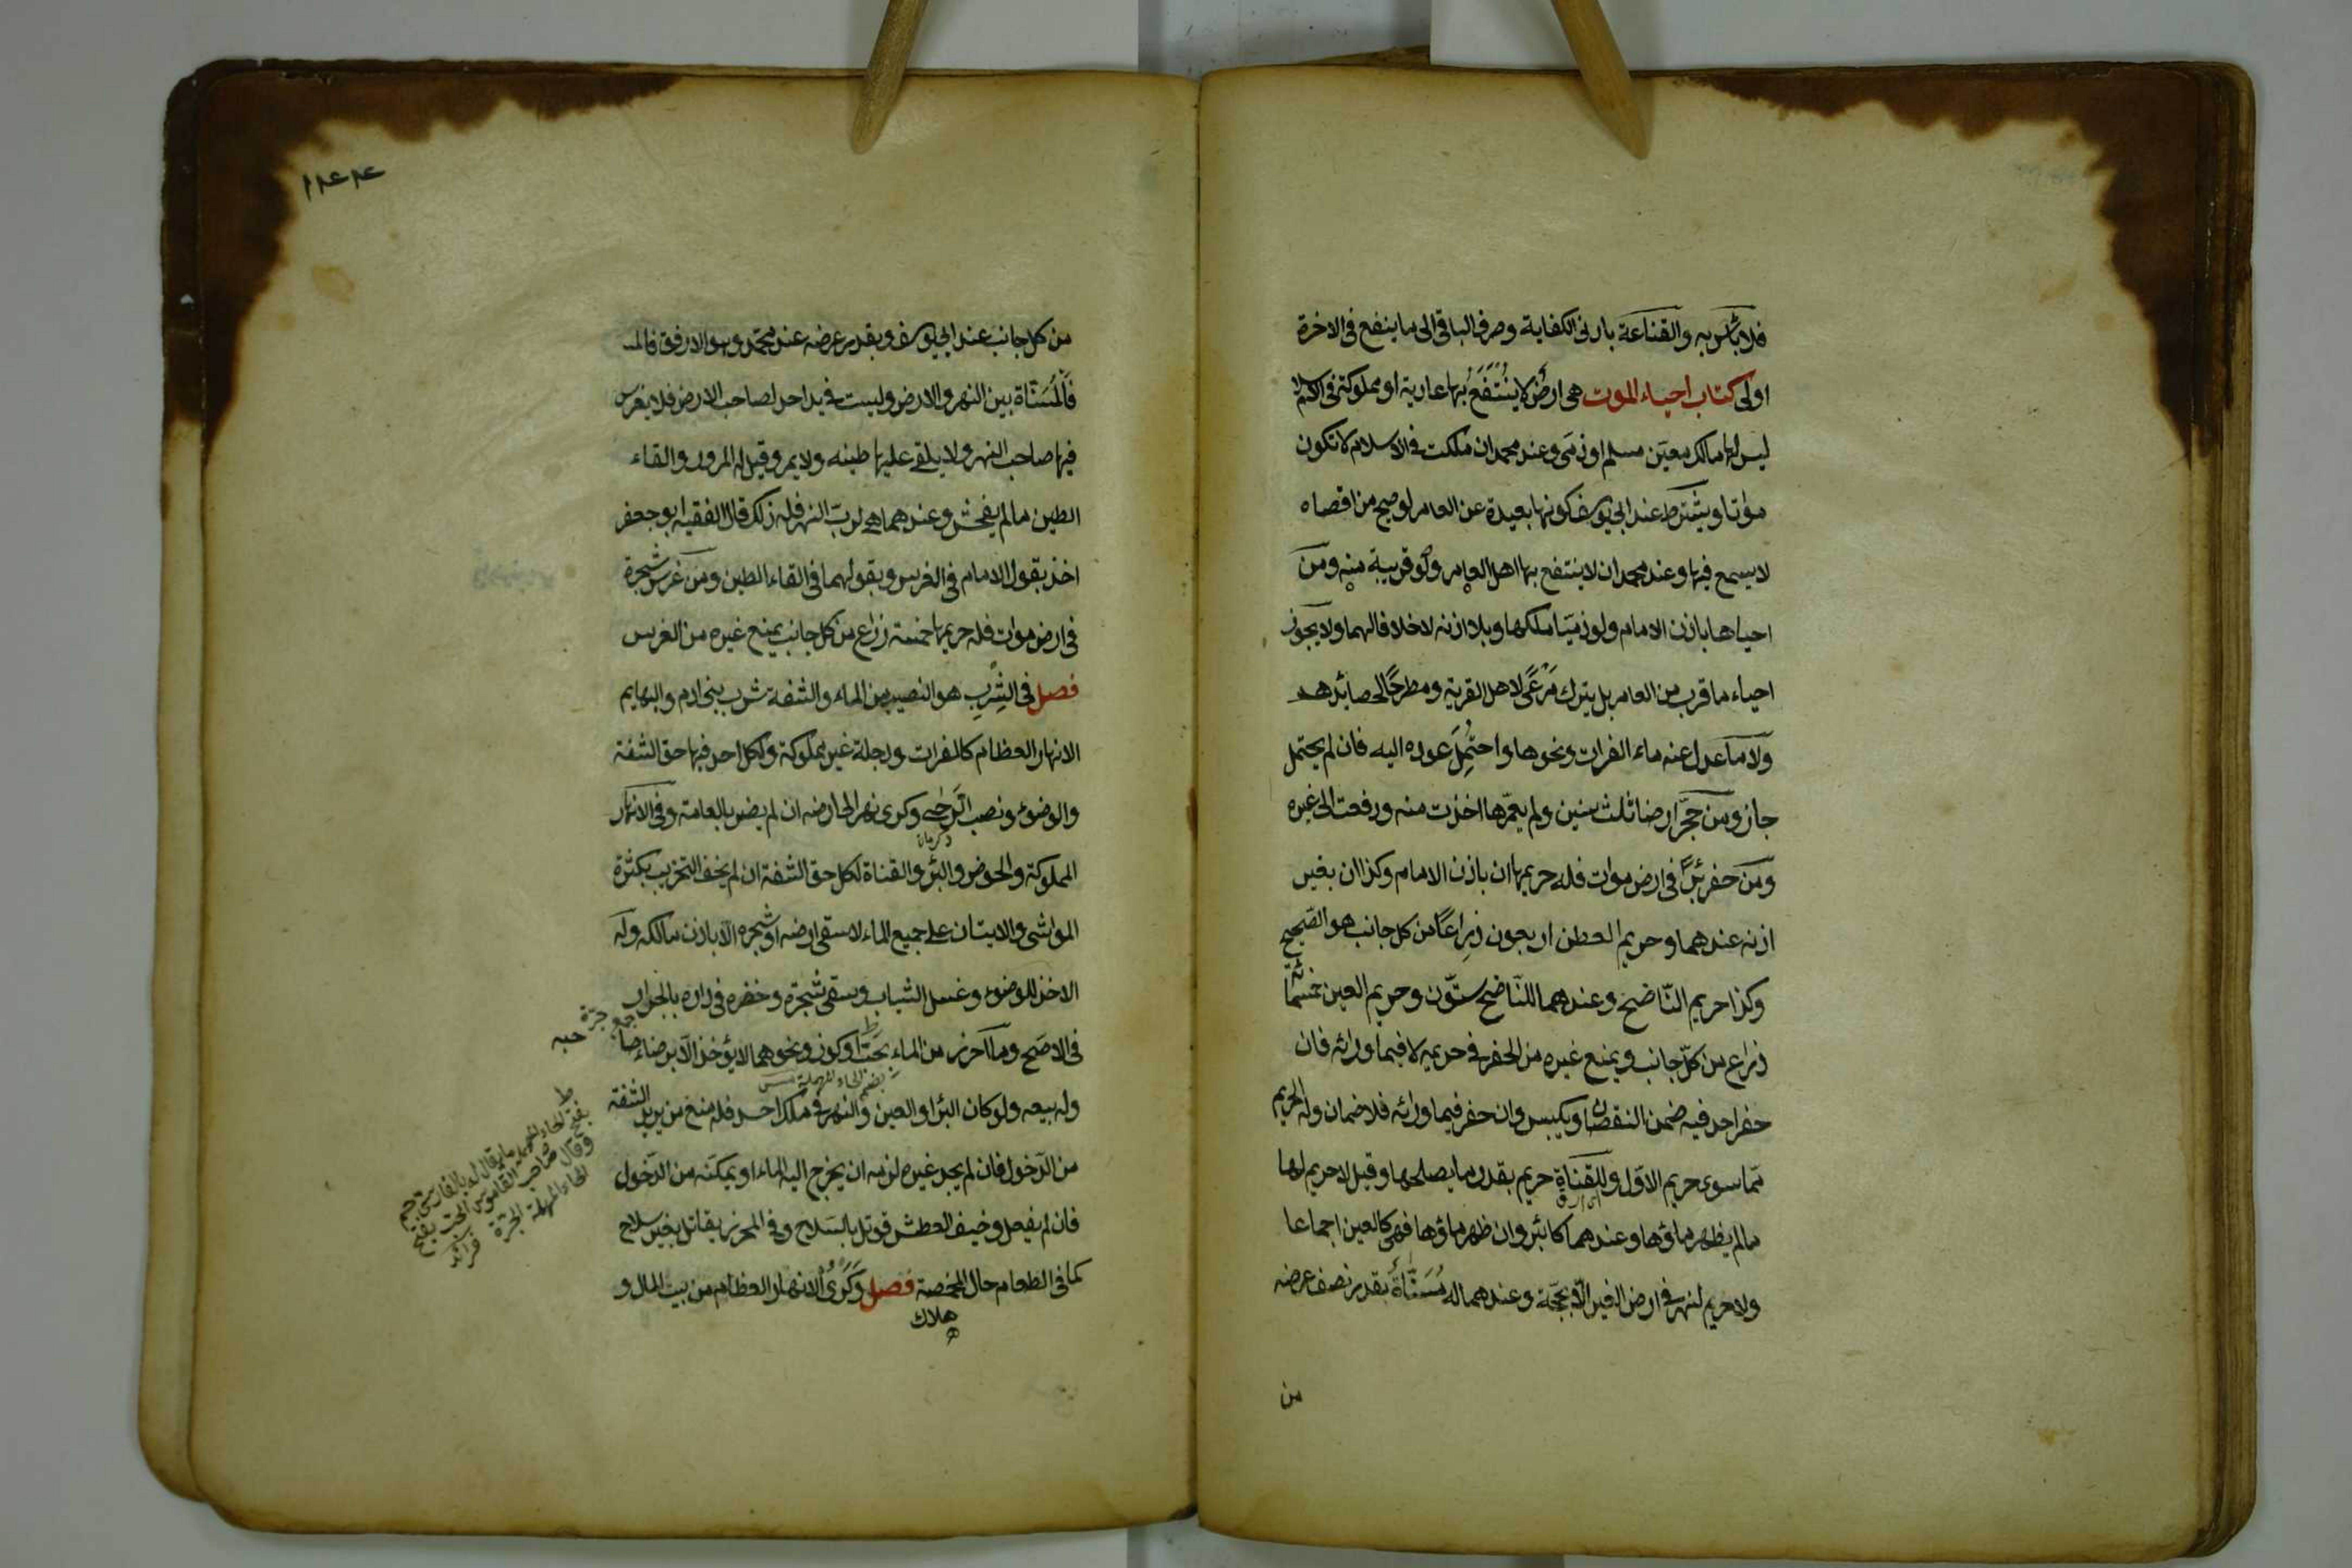 فلا بأس به والقناعة بادنى الكفاية وصرف الباقى الى ما ينفع فى الاخرة
اولى كتاب احياء الموت هى ارض لا ينتفع بها عادية او مملوكة فى الاسلام
ليس لها مالك معين مسلم او ذمى وعند محمد ان ملكت فى الاسلام لا تكون
مواتا ويشترط عند ابى يوسف كونها بعيدة عن العامر لو صيح من اقصاه
لا يسمع فيها وعند محمد ان لا ينتفع بها اهل العامر ولو قريبة منه ومن
احياها باذن الامام ولو ذميا ملكها وبلا اذنه لا خلافا لهما ولا يجوز
احياء ما قرب من العامر بل يترك مرعى لاهل القرية ومطرحا لحصائدهم
ولا ما عدل عنه ماء الفرات ونحوها واحتمل عوده اليه فان لم يحتمل
جاز ومن حجر ارضا ثلث سنين ولم يعمرها اخذت منه ودفعت الى غيره
ومن حفر بئرا فى ارض موات فله حريمها ان باذن الامام وكذا ان بغير
اذنه عندهما وحريم العطن اربعون ذراعا من كل جانب هو الصحيح
وكذا حريم الناضح وعندهما للناضح ستون وحريم العين خمسمائة
ذراع من كل جانب ويمنع غيره من الحفر فى حريمه لا فيما ورائه فان
حفر احد فيه ضمن النقصان ويكبس وان حفر فيما ورائه فلا ضمان وله الحريم
مما سوى حريم الاول وللقناة حريم بقدر ما يصلحها وقيل لا حريم لها
ما لم يظهر ماؤها وعندهما كالبئر وان ظهر ماؤها فهى كالعين اجماعا
ولا حريم لنهر فى ارض الغير الا بحجة وعندهما له مسناة بقدر نصف عرضه
من
١٢٤٤
من كل جانب عند ابى يوسف وبقدر عرضه عند محمد وهو الارفق
فالمسناة بين النهر والارض وليست فى يد احد لصاحب الارض فلا يغرس
فيها صاحب النهر ولا يلقى عليها طينه ولا يمر وقيل له المرور والقاء
الطين ما لم يفحش وعندهما هى لرب النهر فله ذلك قال الفقيه ابو جعفر
اخذ بقول الامام فى الغرس وبقولهما فى القاء الطين ومن غرس شجرة
فى ارض موات فله حريمها خمسة ذراع من كل جانب يمنع غيره من الغرس
فصل فى الشرب هو النصيب من الماء والشفة شرب بنى ادم والبهايم
الانهار العظام كالفرات ودجلة غير مملوكة ولكل احد فيها حق الشفة
والوضوء ونصب الرحى وكرى نهر الى ارضه ان لم يضر بالعامة وفى الانهار
المملوكة والحوض والبئر والقناة لكل حق الشفة ان لم يخف التخريب بكثرة
المواشى والاتيان على جميع الماء لا سقى ارضه او شجره الا باذن مالكه وله
الاخذ للوضوء وغسل الثياب وسقى شجرة وخضره فى داره بالجرار
جمع جرة
فى الاصح وما احرز من الماء بحب او كوز ونحوهما لا يؤخذ الا برضاء صاحبه
بضم الحاء المهملة
وله بيعه ولو كان البئر او العين او النهر فى ملك احد فله منع من يريد الشفة
من الدخول فان لم يجد غيره لزمه ان يخرج اليه الماء او يمكنه من الدخول
فان لم يفعل وخيف العطش قوتل بالسلاح وفى المحرز يقاتل بغير سلاح
كما فى الطعام حال المخمصة فصل وكرى الانهار العظام من بيت المال و
هلاك
بفتح الحاء المهملة ما يقال له بالفارسى خم
وقال صاحب القاموس الحب بفتح
الحاء المهملة الجرة